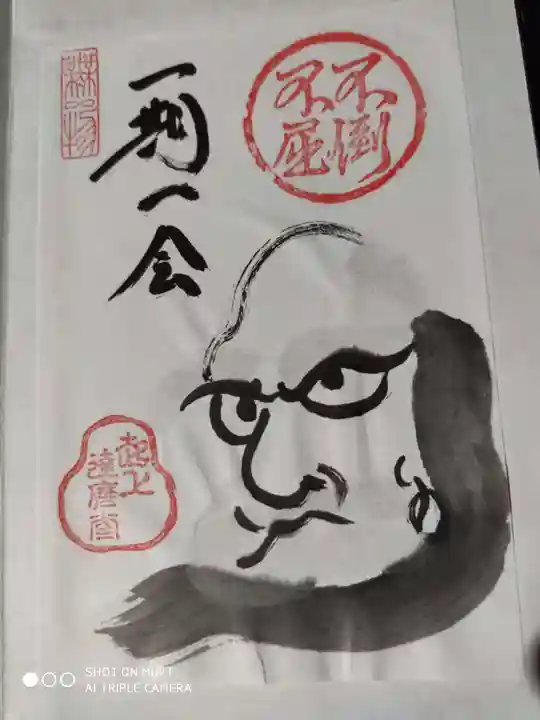 不倒
不屈
一期一会
起上
達磨堂
SHOT ON MI 9T
AI TRIPLE CAMERA